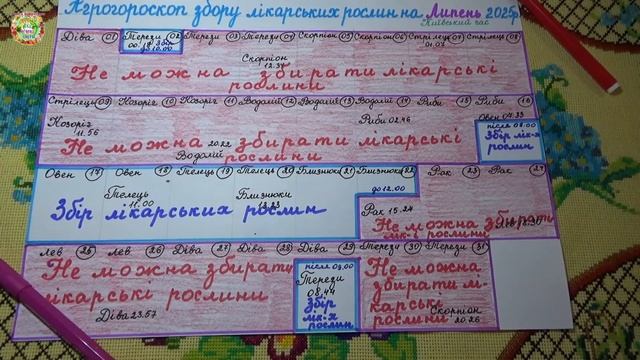 Агрогороскоп збору лікарських рослин на Липень 2025р
Київський час
Діва 01 Терези 02 Терези 03 Терези 04 Скорпіон 05 Скорпіон 06 Стрілець 07 Стрілець 08
00.18 Збір до 10.00
01.07
Скорпіон
12.34
Не можна збирати лікарські
рослини
Стрілець 09 Козоріг 10 Козоріг 11 Водолій 12 Водолій 13 Водолій 14 Риби 15 Риби 16
Козоріг
11.56
Риби 02.46
Овен 04.33
після 08.00
Збір лік-х
рослин
Не можна збирати лікарські
рослини
20.22
Водолій
Овен 17 Овен 18 Телець 19 Телець 20 Близнюки 21 Близнюки 22 Рак 23 Рак 24
Телець
11.00
Близнюки
до 12.00
Рак 15.24
Збір лікарських рослин
Не можна збирати
лік-і рослини
Лев 25 Лев 26 Діва 27 Діва 28 Діва 29 Терези 30 Терези 31
після 03.00
Терези
08.44
Збір
лік-х
рослин
Не можна збирати
лікарські рослини
Діва 23.57
Не можна
збирати лі-
карські
рослини
Скорпіон
20.26